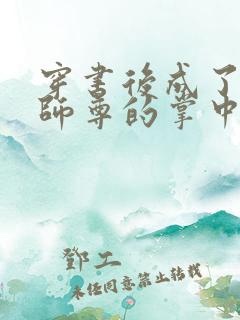 穿書後成了
師尊的掌中
鄧工
未經同意禁止轉載